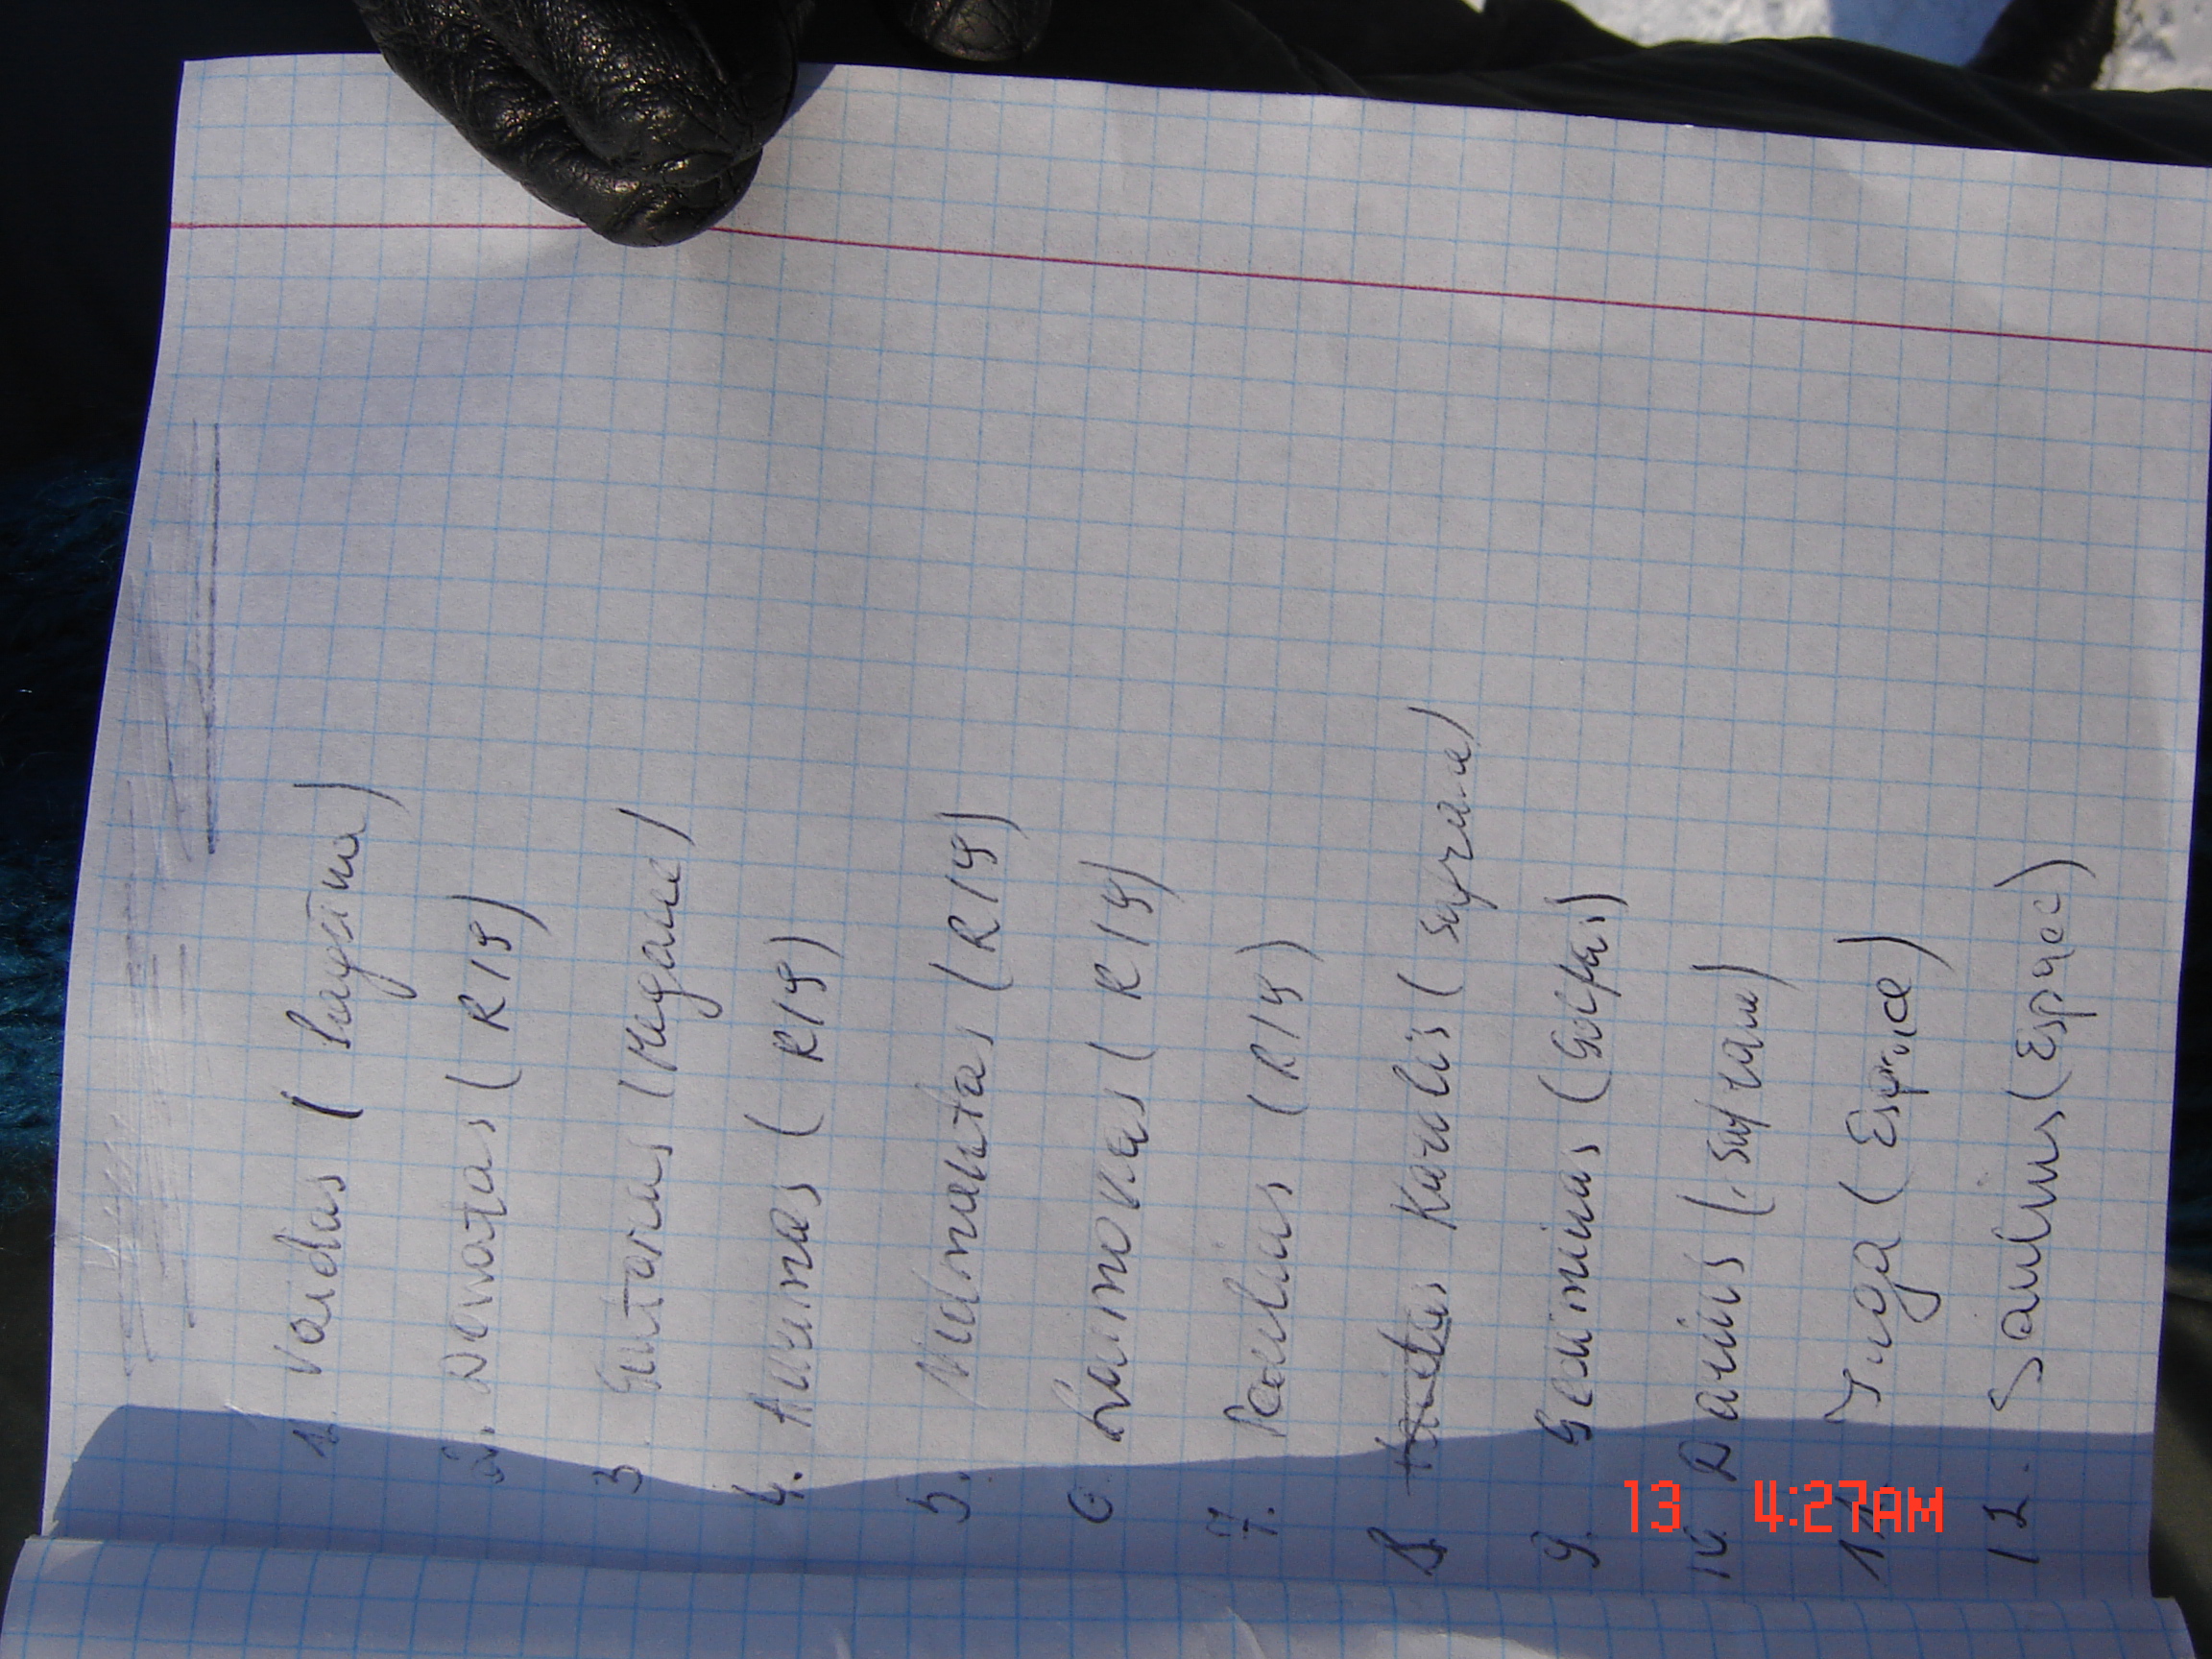 1. Vaidas (Laguna)
2. Donatas (R19)
3 Gintaras (Megane)
4. Aurimas (R19)
5. Vidmantas (R19)
6. Laimonas (R19)
7. Paulius (R19)
8. Karolis (Safrane)
9. Gediminas (Golfas)
10 Darius (Safrane)
11. Inga (Espace)
12. Saulius (Espace)
13 4:27AM